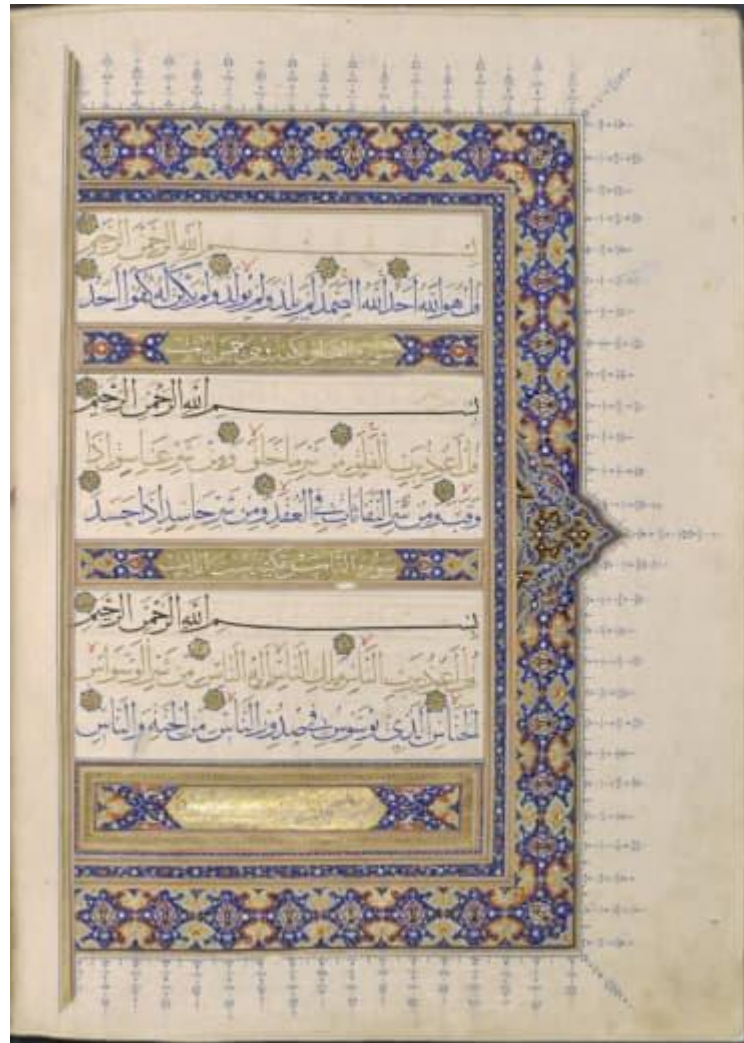 بسم الله الرحمن الرحيم
قل هو الله احد الله الصمد لم يلد ولم يولد ولم يكن له كفوا احد
بسم الله الرحمن الرحيم
قل اعوذ برب الفلق من شر ما خلق ومن شر غاسق اذا
وقب ومن شر النفاثات في العقد ومن شر حاسد اذا حسد
بسم الله الرحمن الرحيم
قل اعوذ برب الناس ملك الناس اله الناس من شر الوسواس
الخناس الذي يوسوس في صدور الناس من الجنة والناس